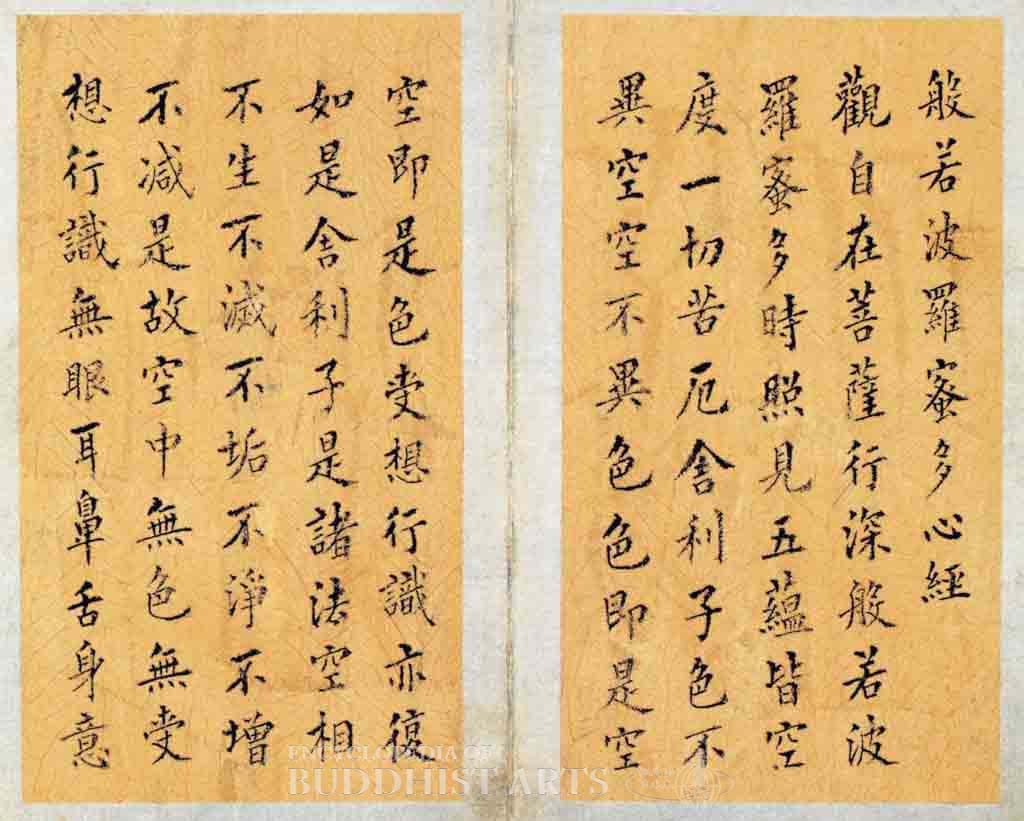 般若波羅蜜多心經
觀自在菩薩行深般若波
羅蜜多時照見五蘊皆空
度一切苦厄舍利子色不
異空空不異色色即是空
空即是色受想行識亦復
如是舍利子是諸法空相
不生不滅不垢不淨不增
不減是故空中無色無受
想行識無眼耳鼻舌身意
ENCYCLOPEDIA OF
BUDDHIST ARTS